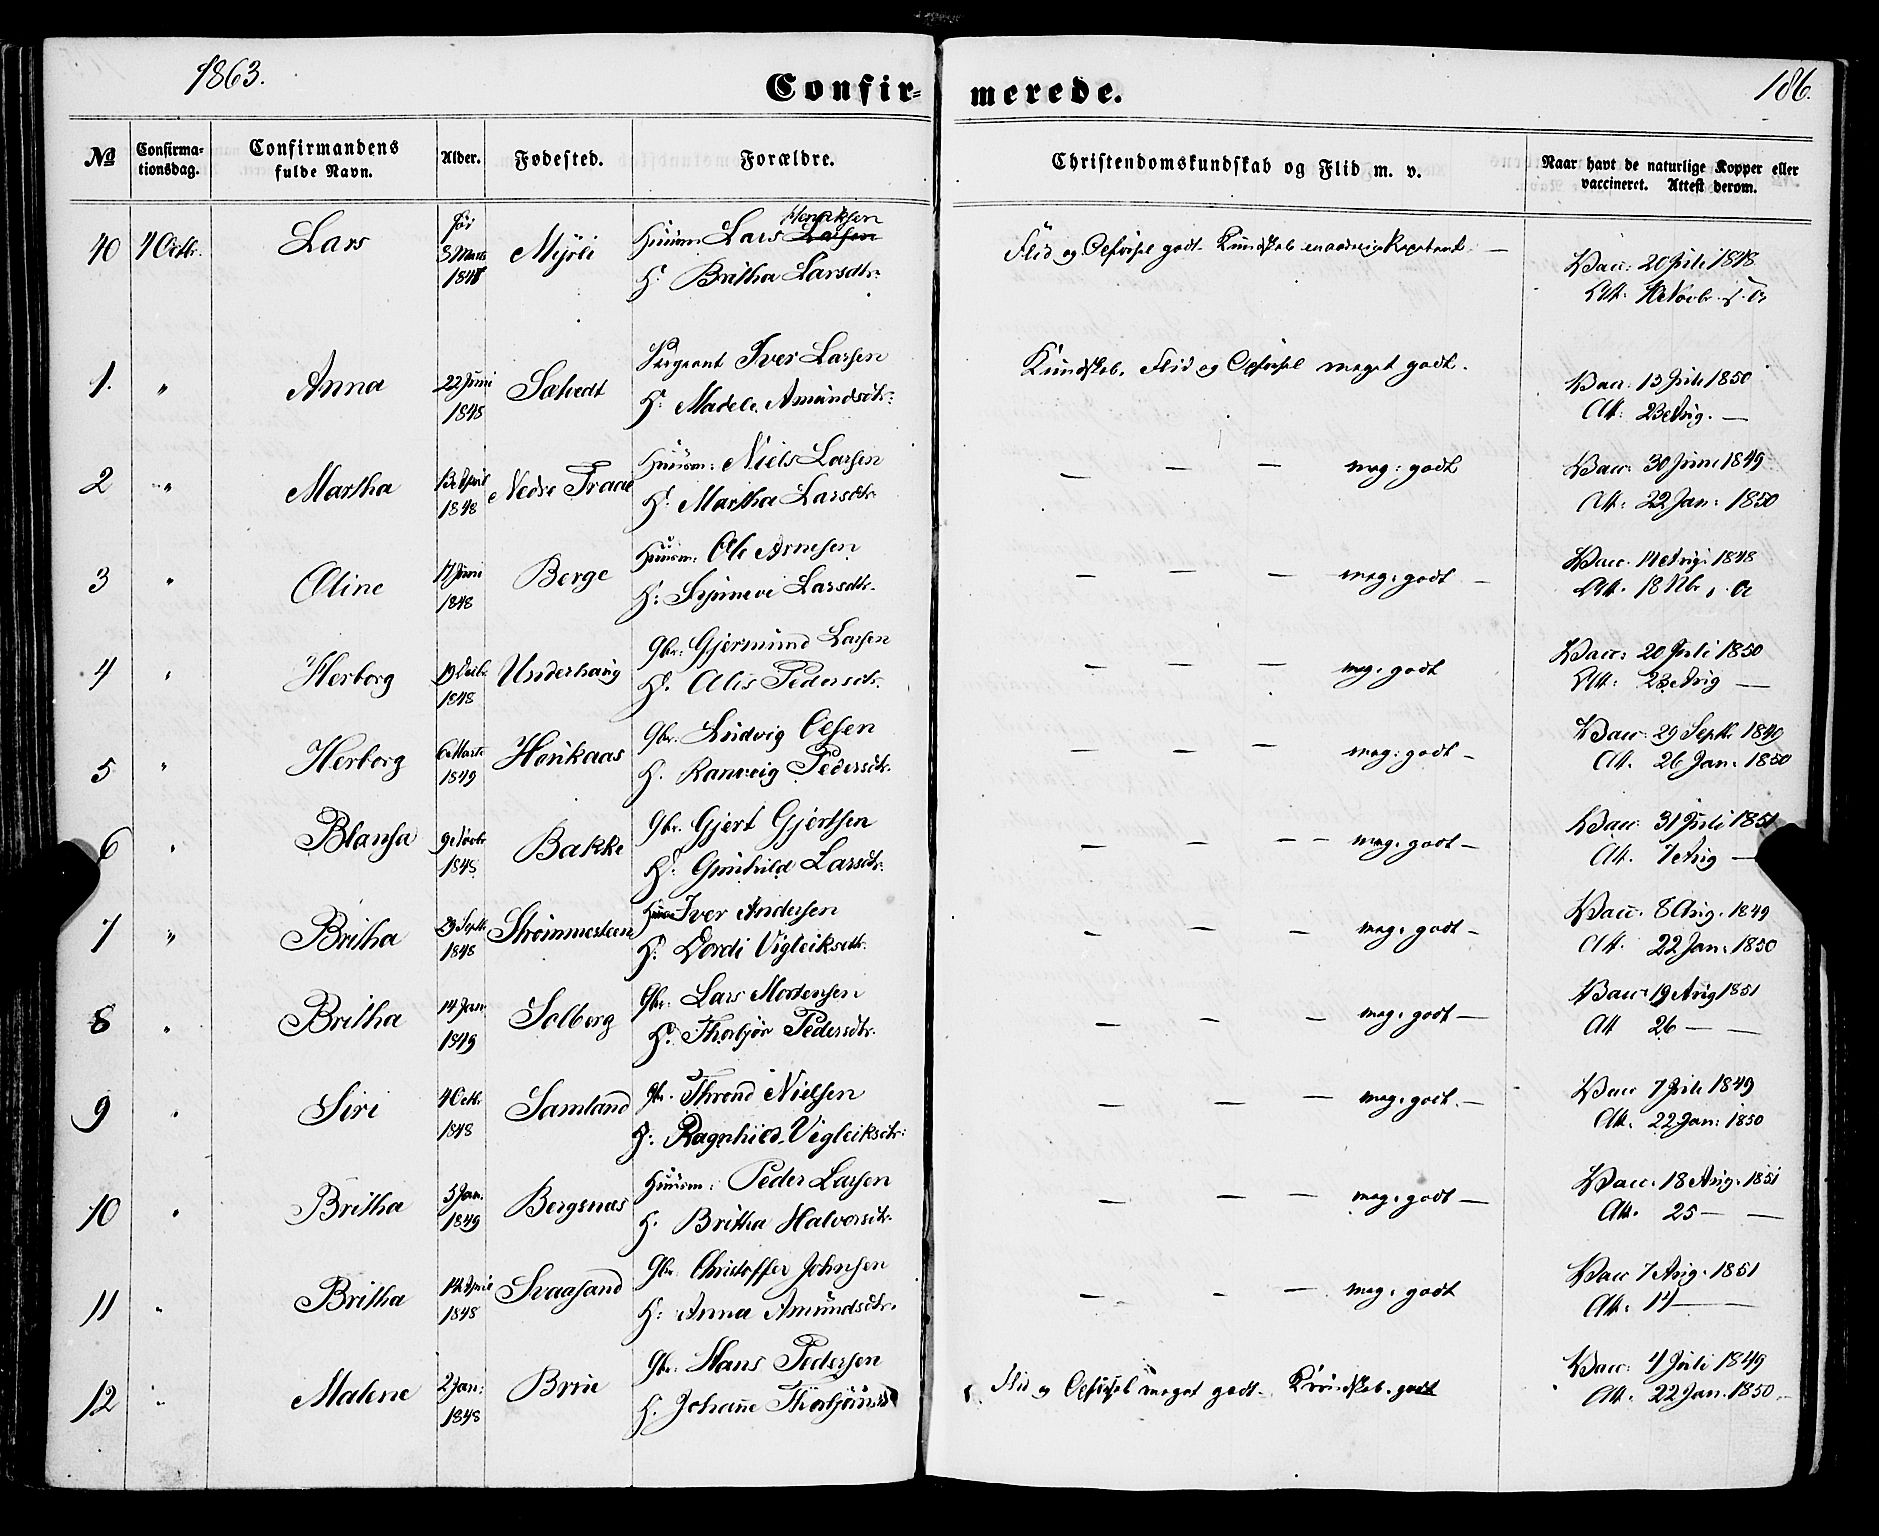 1863.
Confirmerede.
186.
№
Confirmationsdag.
Confirmandens fulde Navn.
Alder.
Fødested.
Forældre.
Christendomskundskab og Flid m. v.
Naar havt de naturlige Kopper eller vaccineret. Attest derom.
40 4 Octbr. Lars 3 Marts Mjöli Huusm: Lars Larsen Henriksen
H. Britha Larsdtr:
Flid og Opførsel godt. Kundskab
Vacc: 20 Juli 1848
Att.
1. " Anna 22 Juni 1848 Sergeant Iver Larsen
H: Madele Amundsdtr:
Kundskab, Flid og Opførsel meget godt.
Vacc: 13 Juli 1850
Att: 23 Aug. —
2 " Martha 13 April 1848 Nedre Traae Huusm: Niels Larsen
H. Martha Larsdtr.
— — — meg: godt
Vacc: 30 Juni 1849
Att: 22 Jan: 1850
3 " Oline 17 Juni 1848 Berge Huusm: Ole Arnesen
H: Synneve Larsdtr.
— — — meg: godt —
Vacc. 14 Aug: 1848
Att. 18 Nbr
4 " Herborg 19 Decbr. 1848 Underhaug Gbr: Gjermund Larsen
H. Alis Pedersdtr.
— — — meg: godt
Vacc: 20 Juli 1850
Att: 23 Aug —
5 " Herborg 6 Marts 1849 Gbr. Ludvig Olsen
H. Ranveig Pedersdtr.
— — — meg: godt —
Vacc: 29 Septbr. 1849
Att. 26 Jan: 1850
6 " Blansa 9 Novbr 1848 Bakke Gbr. Gjert Gjertsen
H. Gunhild Larsdtr.
— — — — meg: godt —
Vacc. 31 Juli 1851
Att. 7 Aug —
7 " Britha 29 Septbr. 1848 Strømmesteen Huusm Iver Andersen
H: Dordi Vigleiksdtr.
— — — meg: godt —
Vacc. 8 Aug. 1849
Att. 22 Jan: 1850
8 " Britha 14 Jan: 1849 Solberg Gbr: Lars Mortensen
H: Thorbjør Pedersdtr.
— — — meg: godt —
Vacc: 19 Aug 1851
Att 26 — —
9 " Siri 4 Octbr. 1848 Samland Gbr. Thrond Nielsen
H: Ragnhild Vigleiksdtr:
— — — meg: godt. —
Vacc 7 Juli 1849
Att. 22 Jan: 1850
10 " Britha 3 Jan. 1849 Bergsnæs Huusm: Peder Larsen
H. Britha Halvorsdtr.
— — — meg: godt —
Vacc. 18 Aug. 1851
Att. 25 — —
11 " Britha 14 April 1848 Svaasand Gbr. Christoffer Johnsen
H: Anna Amundsdtr.
— — — meg: godt
Vacc 7 Aug. 1851
Att: 14 — —
12 " Malene 2 Jan: 1848 Brue Gbr. Hans Pedersen
H. Johanne
Flid og Opførsel meget godt. Kundskab godt
Vacc: 4 Juli 1849
Att. 22 Jan. 1850